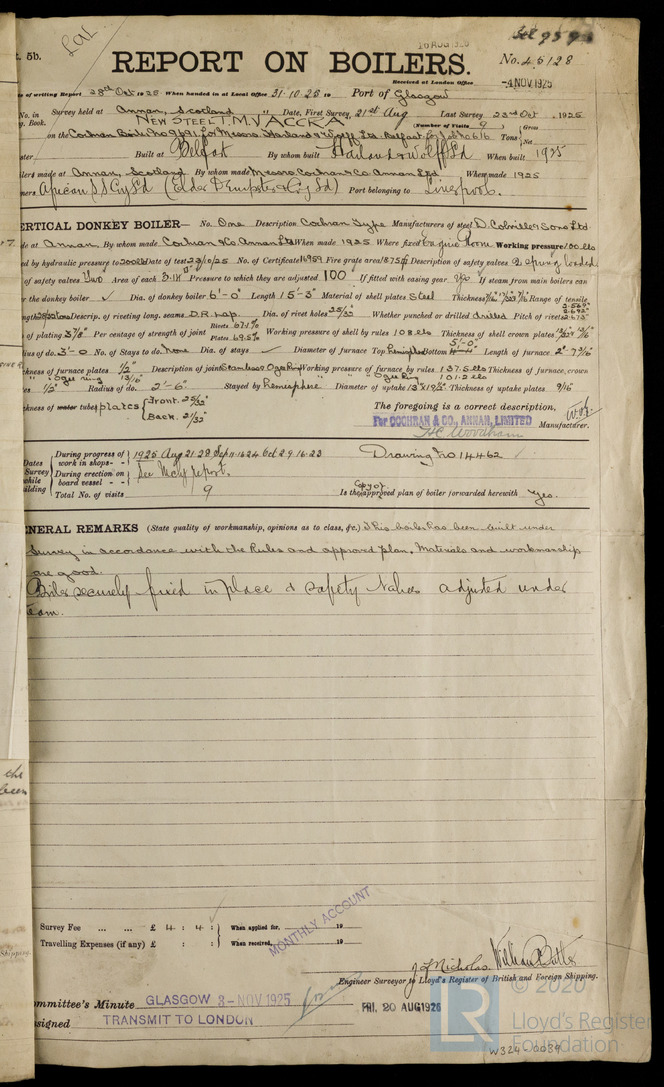 t. 5b.
Lal
16 AUG 1926
REPORT ON BOILERS.
No. 45128
Received at London Office
-4 NOV 1925
of writing Report 28th Oct 1925 When handed in at Local Office 31.10.25 Port of Glasgow
No. in Survey held at Annan, Scotland Date, First Survey, 21st Aug Last Survey 23rd Oct 1925
g. Book. (Number of Visits 9)
NEW STEEL T.M.V ACCRA
on the Cochran Boiler No 9691 for Messrs. Harland & Wolff Ltd. Belfast for Job No 616 Tons Gross Net
ster Built at Belfast By whom built Harland & Wolff Ltd When built 1925
ilers made at Annan, Scotland By whom made Messrs Cochran & Co Annan Ltd When made 1925
ners African S.S. Coy Ld (Elder Dempster & Coy Ld) Port belonging to Liverpool.
ERTICAL DONKEY BOILER— No. One Description Cochran Type Manufacturers of steel D. Colville & Sons Ltd
de at Annan. By whom made Cochran & Co. Annan Ltd When made 1925. Where fixed Engine Room Working pressure 100 lbs
ed by hydraulic pressure to 200 lbs Date of test 23/10/25 No. of Certificate 16959 Fire grate area 18.75 ▫' Description of safety valves 2 spring loaded
of safety valves Two Area of each 3.14 ▫" Pressure to which they are adjusted 100 If fitted with easing gear Yes If steam from main boilers can
r the donkey boiler ✓ Dia. of donkey boiler 6'-0" Length 15'-3" Material of shell plates Steel Thickness Range of tensile
ngth 28/32 tons Descrip. of riveting long. seams D.R. Lap. Dia. of rivet holes 25/32" Whether punched or drilled drilled Pitch of rivets
of plating 3 7/8" Per centage of strength of joint Rivets 67.1% Plates 69.5% Working pressure of shell by rules 108 lbs Thickness of shell crown plates
ius of do. 3'-0 No. of Stays to do. None Dia. of stays ✓ Diameter of furnace Top hemisphere Bottom 5'-0" Length of furnace 2'-7 9/16"
ckness of furnace plates 1/2" Description of joint Seamless Ogee Ring Working pressure of furnace by rules 137.5 lbs Thickness of furnace crown
" Ogee ring 13/16" " Ogee Ring 101.2 lbs
es 1/2" Radius of do. 2'-6" Stayed by hemisphere Diameter of uptake Thickness of uptake plates 9/16
ckness of water tubes plates Front. 25/32" Back. 21/32"
The foregoing is a correct description,
For COCHRAN & CO., ANNAN, LIMITED Manufacturer.
Dates
Survey
while
ilding
During progress of work in shops - - 1925 Aug 21.28 Sep 11.16.24 Oct 2.9.16.23
During erection on board vessel - - See Mchy report.
Total No. of visits 9
Drawing No 14462
Copy of
Is the approved plan of boiler forwarded herewith Yes.
NERAL REMARKS (State quality of workmanship, opinions as to class, &c.) This boiler has been built under
Survey in accordance with the Rules and approved plan. Materials and workmanship
are good.
Boiler securely fixed in place & safety valves adjusted under
team.
the
been
Survey Fee ... ... £ 4 : 4 : When applied for, 19
Travelling Expenses (if any) £ : : When received, 19
MONTHLY ACCOUNT
J. Nicholas. William Butler
Engineer Surveyor to Lloyd's Register of British and Foreign Shipping.
Shipping.
ommittee's Minute GLASGOW 3-NOV 1925
FRI. 20 AUG 1926
ssigned TRANSMIT TO LONDON
LR
© 2020
Lloyd's Register
Foundation
W324-0039